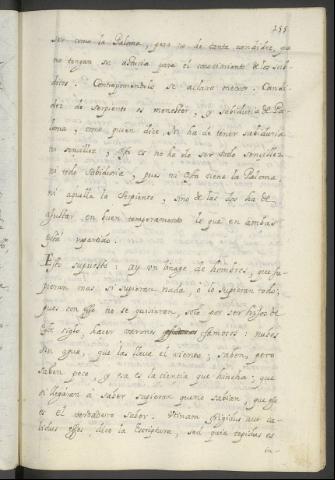 255
ser como la Paloma, pero no de tanta candidez, que
no tengan su astucia para el conocimiento de los sub-
ditos. Contraponiendolo se aclara mexor. Candi-
dez de serpiente es menester, y sabiduria de Pa-
loma, como quien dize, Ni ha de tener sabiduria
ni sencillez, esto es no ha de ser todo sencillez
ni todo sabiduria, pues ni esta tiene la Paloma
ni aquella la serpiente, sino de las dos ha de
ajustar en buen temperamento lo que en ambas
está repartido.
Esto supuesto: ay un linage de hombres, que su-
pieran mas, si supieran nada, o lo supieran todo;
pues con esso no se quisieran, solo por ser hijos de
este siglo, hacer varones famosos: nubes
sin agua, que las lleva el viento; saben, pero
saben poco, y esa es la ciencia que hincha; que
si llegaran a saber supieran que no sabian, que esse
es el verdadero saber. Utinam frigidus aut ca-
lidus esses, dice la Escriptura, sed quia tepidus es
in-